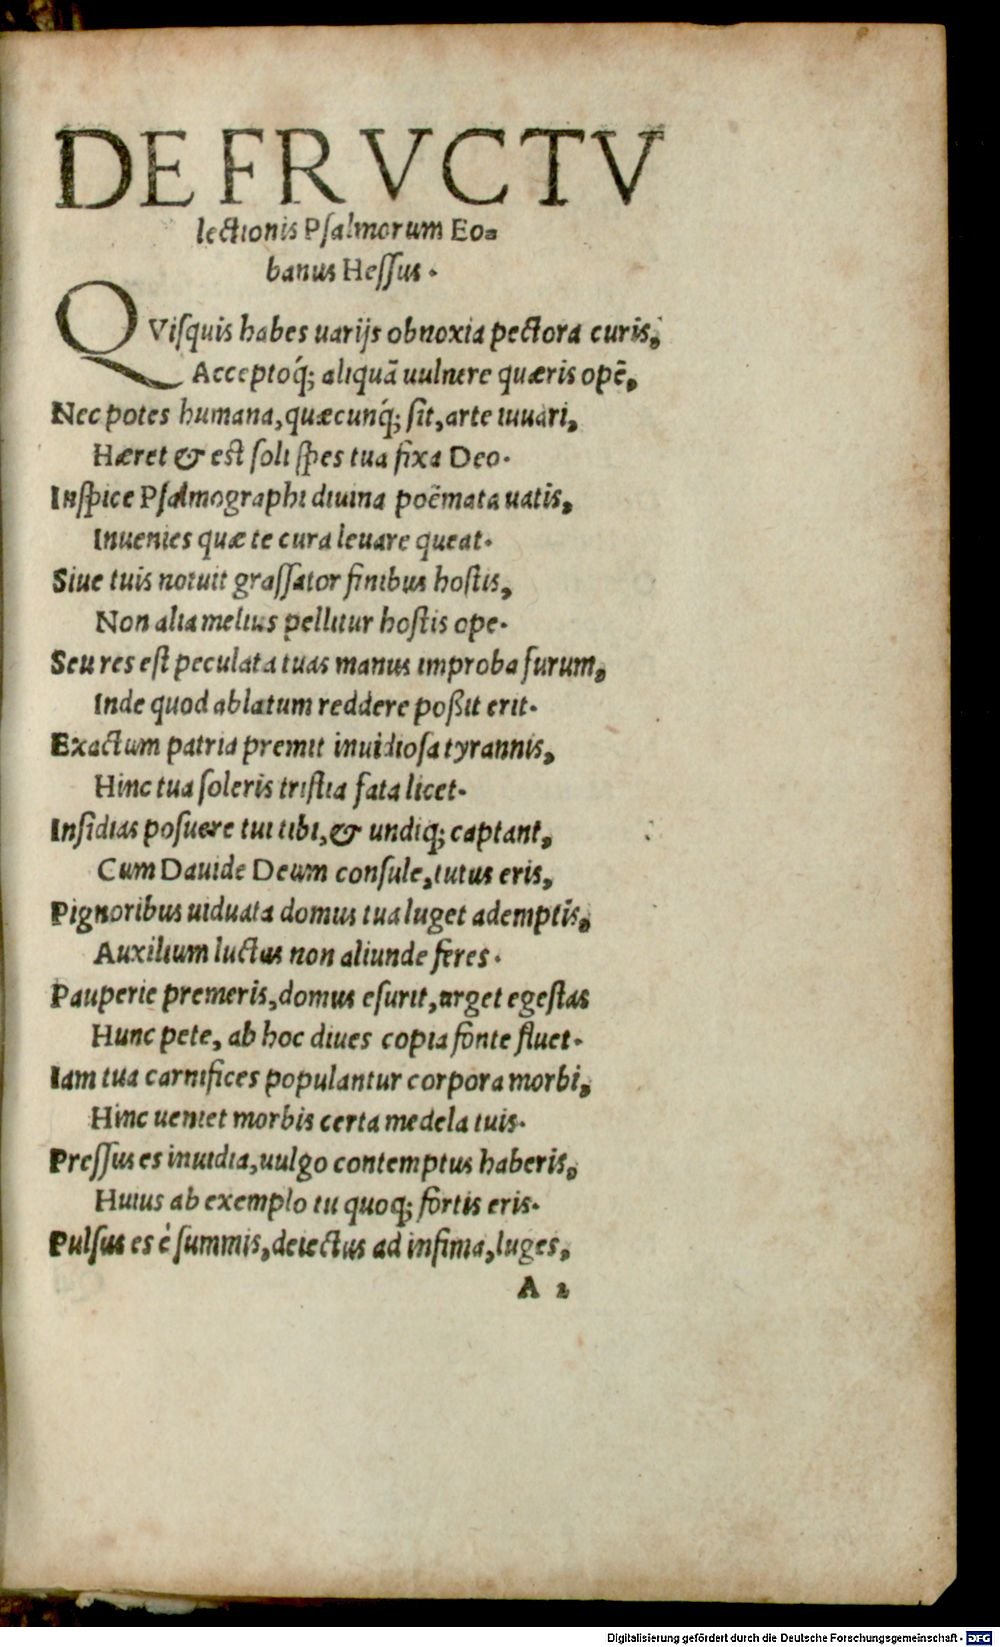 DE FRVCTV
lectionis Psalmorum Eo=
banus Hessus.
QVisquis habes uarijs obnoxia pectora curis,
Acceptoq́; aliquā uulnere quæris opē,
Nec potes humana, quæcunq́; sit, arte iuuari,
Hæret & est soli spes tua fixa Deo.
Inspice Psalmographi diuina poëmata uatis,
Inuenies quæ te cura leuare queat.
Siue tuis nocuit grassator finibus hostis,
Non alia melius pellitur hostis ope.
Seu res est peculata tuas manus improba furum,
Inde quod ablatum reddere poßit erit.
Exactum patria premit inuidiosa tyrannis,
Hinc tua soleris tristia fata licet.
Insidias posuere tui tibi, & undiq; captant,
Cum Dauide Deum consule, tutus eris,
Pignoribus uiduata domus tua luget ademptis,
Auxilium luctus non aliunde feres.
Pauperie premeris, domus esurit, urget egestas
Hunc pete, ab hoc diues copia fonte fluet.
Iam tua carnifices populantur corpora morbi,
Hinc ueniet morbis certa medela tuis.
Pressus es inuidia, uulgo contemptus haberis,
Huius ab exemplo tu quoq; fortis eris.
Pulsus es è summis, deiectus ad infima, luges,
A 2
Digitalisierung gefördert durch die Deutsche Forschungsgemeinschaft - DFG